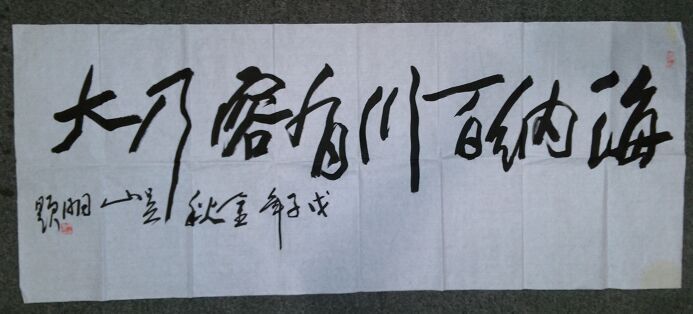 海纳百川有容乃大
戊子年金秋吴山明题